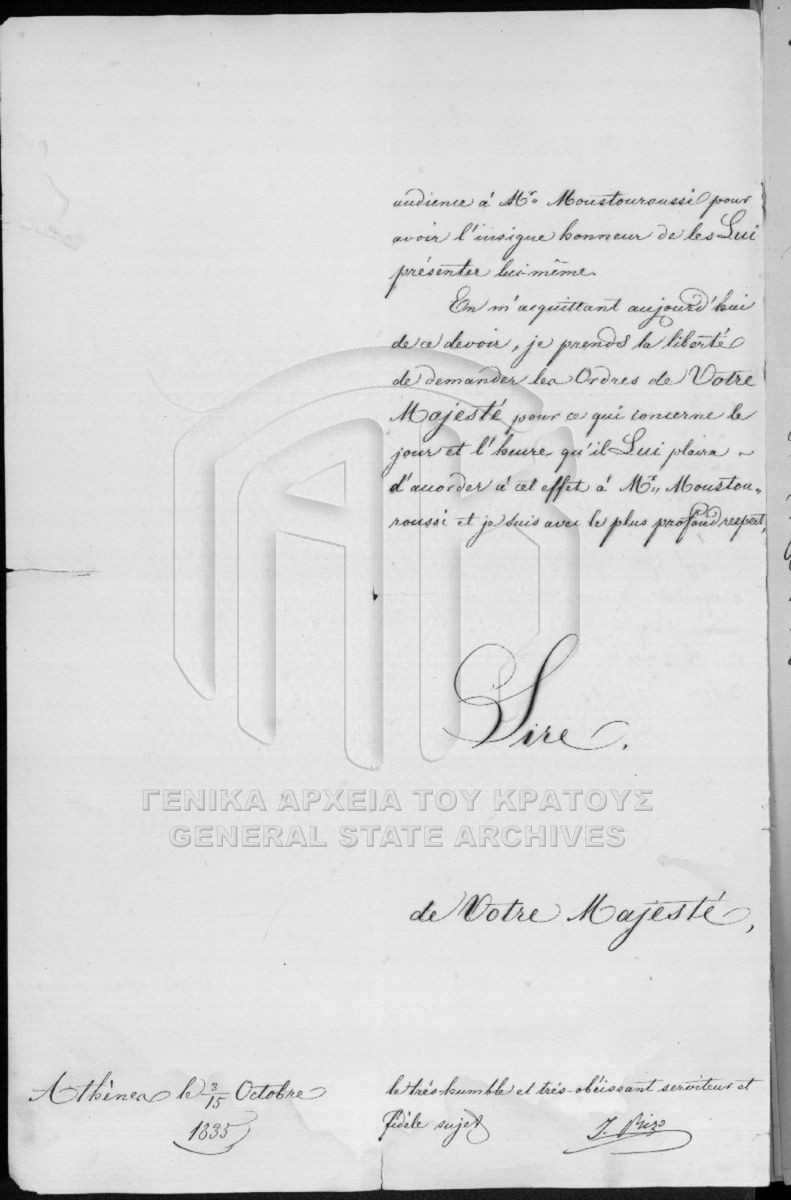 audience à Mr. Moustouroussi pour
avoir l'insigne honneur de les Lui
présenter lui-même.
En m'acquittant aujourd'hui
de ce devoir, je prends la liberté
de demander les Ordres de Votre
Majesté pour ce qui concerne le
jour et l'heure qu'il Lui plaira
d'accorder à cet effet à Mr. Moustou-
roussi et je suis avec le plus profond respect,
Sire,
ΓΕΝΙΚΑ ΑΡΧΕΙΑ ΤΟΥ ΚΡΑΤΟΥΣ
GENERAL STATE ARCHIVES
de Votre Majesté,
Athènes le 3/15 Octobre
1835
le très-humble et très-obéissant serviteur et
fidèle sujet
J. Rizo